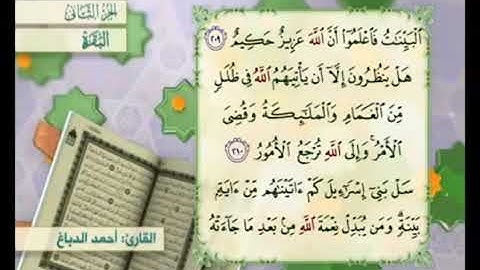 الجزء الثاني
البقرة
ٱلۡبَيِّنَٰتُ فَٱعۡلَمُوٓاْ أَنَّ ٱللَّهَ عَزِيزٌ حَكِيمٌ ٢٠٩
هَلۡ يَنظُرُونَ إِلَّآ أَن يَأۡتِيَهُمُ ٱللَّهُ فِي ظُلَلٖ
مِّنَ ٱلۡغَمَامِ وَٱلۡمَلَٰٓئِكَةُ وَقُضِيَ
ٱلۡأَمۡرُۚ وَإِلَى ٱللَّهِ تُرۡجَعُ ٱلۡأُمُورُ ٢١٠
سَلۡ بَنِيٓ إِسۡرَٰٓءِيلَ كَمۡ ءَاتَيۡنَٰهُم مِّنۡ ءَايَةِۭ
بَيِّنَةٖۗ وَمَن يُبَدِّلۡ نِعۡمَةَ ٱللَّهِ مِنۢ بَعۡدِ مَا جَآءَتۡهُ
القارئ: أحمد الدباغ